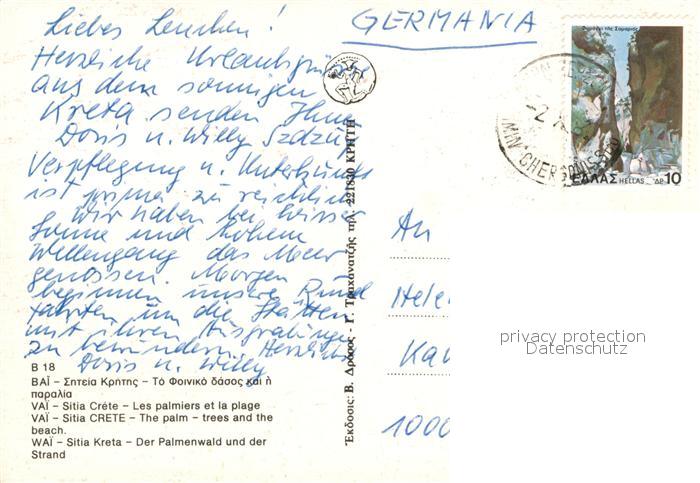 Liebes Lenchen!
GERMANIA
Herzliche Urlaubsgrü
aus dem sonnigen
Kreta senden Ihnen
Doris u. Willy
Verpflegung u. Unterkunft
ist prima zu reichlich
Wir haben bei heisser
Sonne und hohem
Wellengang das Meer
genossen. Morgen
beginnen unsre Rund
fahrten um die Stätten
mit ihren Ausgrabungen
zu bewundern. Herzlichst
Doris u. Willy
B 18
ΒΑΪ – Σητεία Κρητης – Τό Φοινικό δάσος καί ἡ
παραλία
VAÏ – Sitia Crète – Les palmiers et la plage
VAÏ – Sitia CRETE – The palm – trees and the
beach.
WAÏ – Sitia Kreta – Der Palmenwald und der
Strand
Ἔκδοσις: Β. Δρόσος – Γ. Τραχανατζῆς τηλ. 221830 ΚΡΗΤΗ
Φαράγγι της Σαμαριάς
ΕΛΛΑΣ HELLAS ΔΡ 10
An
Hele
Ka
1000
privacy protection
Datenschutz